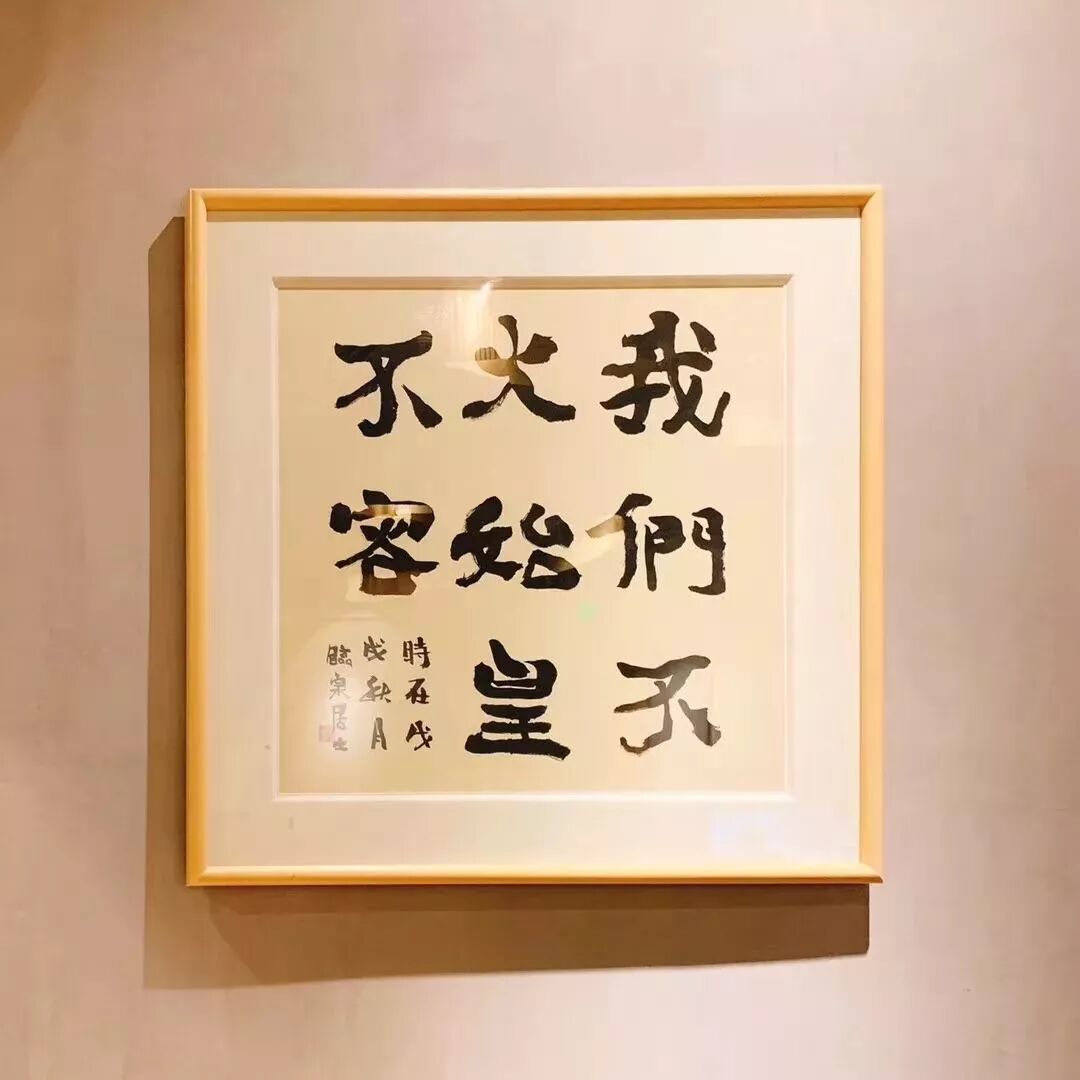 我們不
火始皇
不容
時在戊
戌秋月
臨泉居士